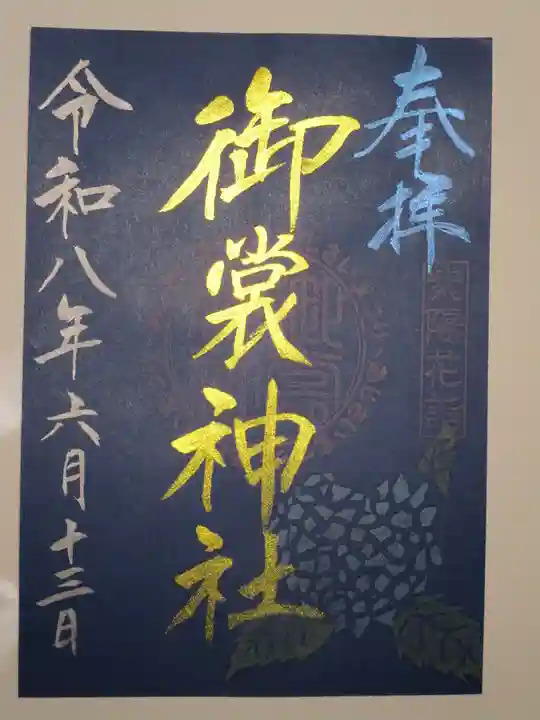 奉拝
御裳神社
令和八年六月十三日